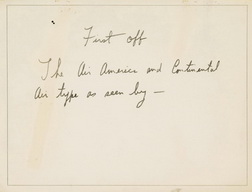 First off
The Air America and Continental
Air type as seen by —